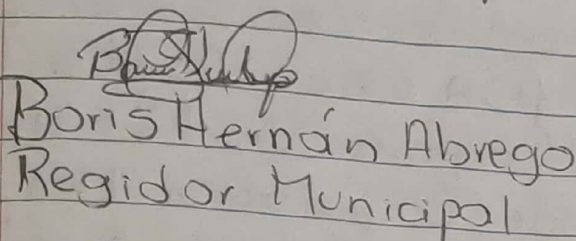 Boris Hernán Abrego
Regidor Municipal